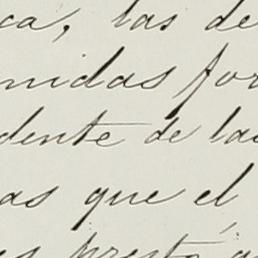 ca, las de
nidas for
dente de la
as que el
es prestó